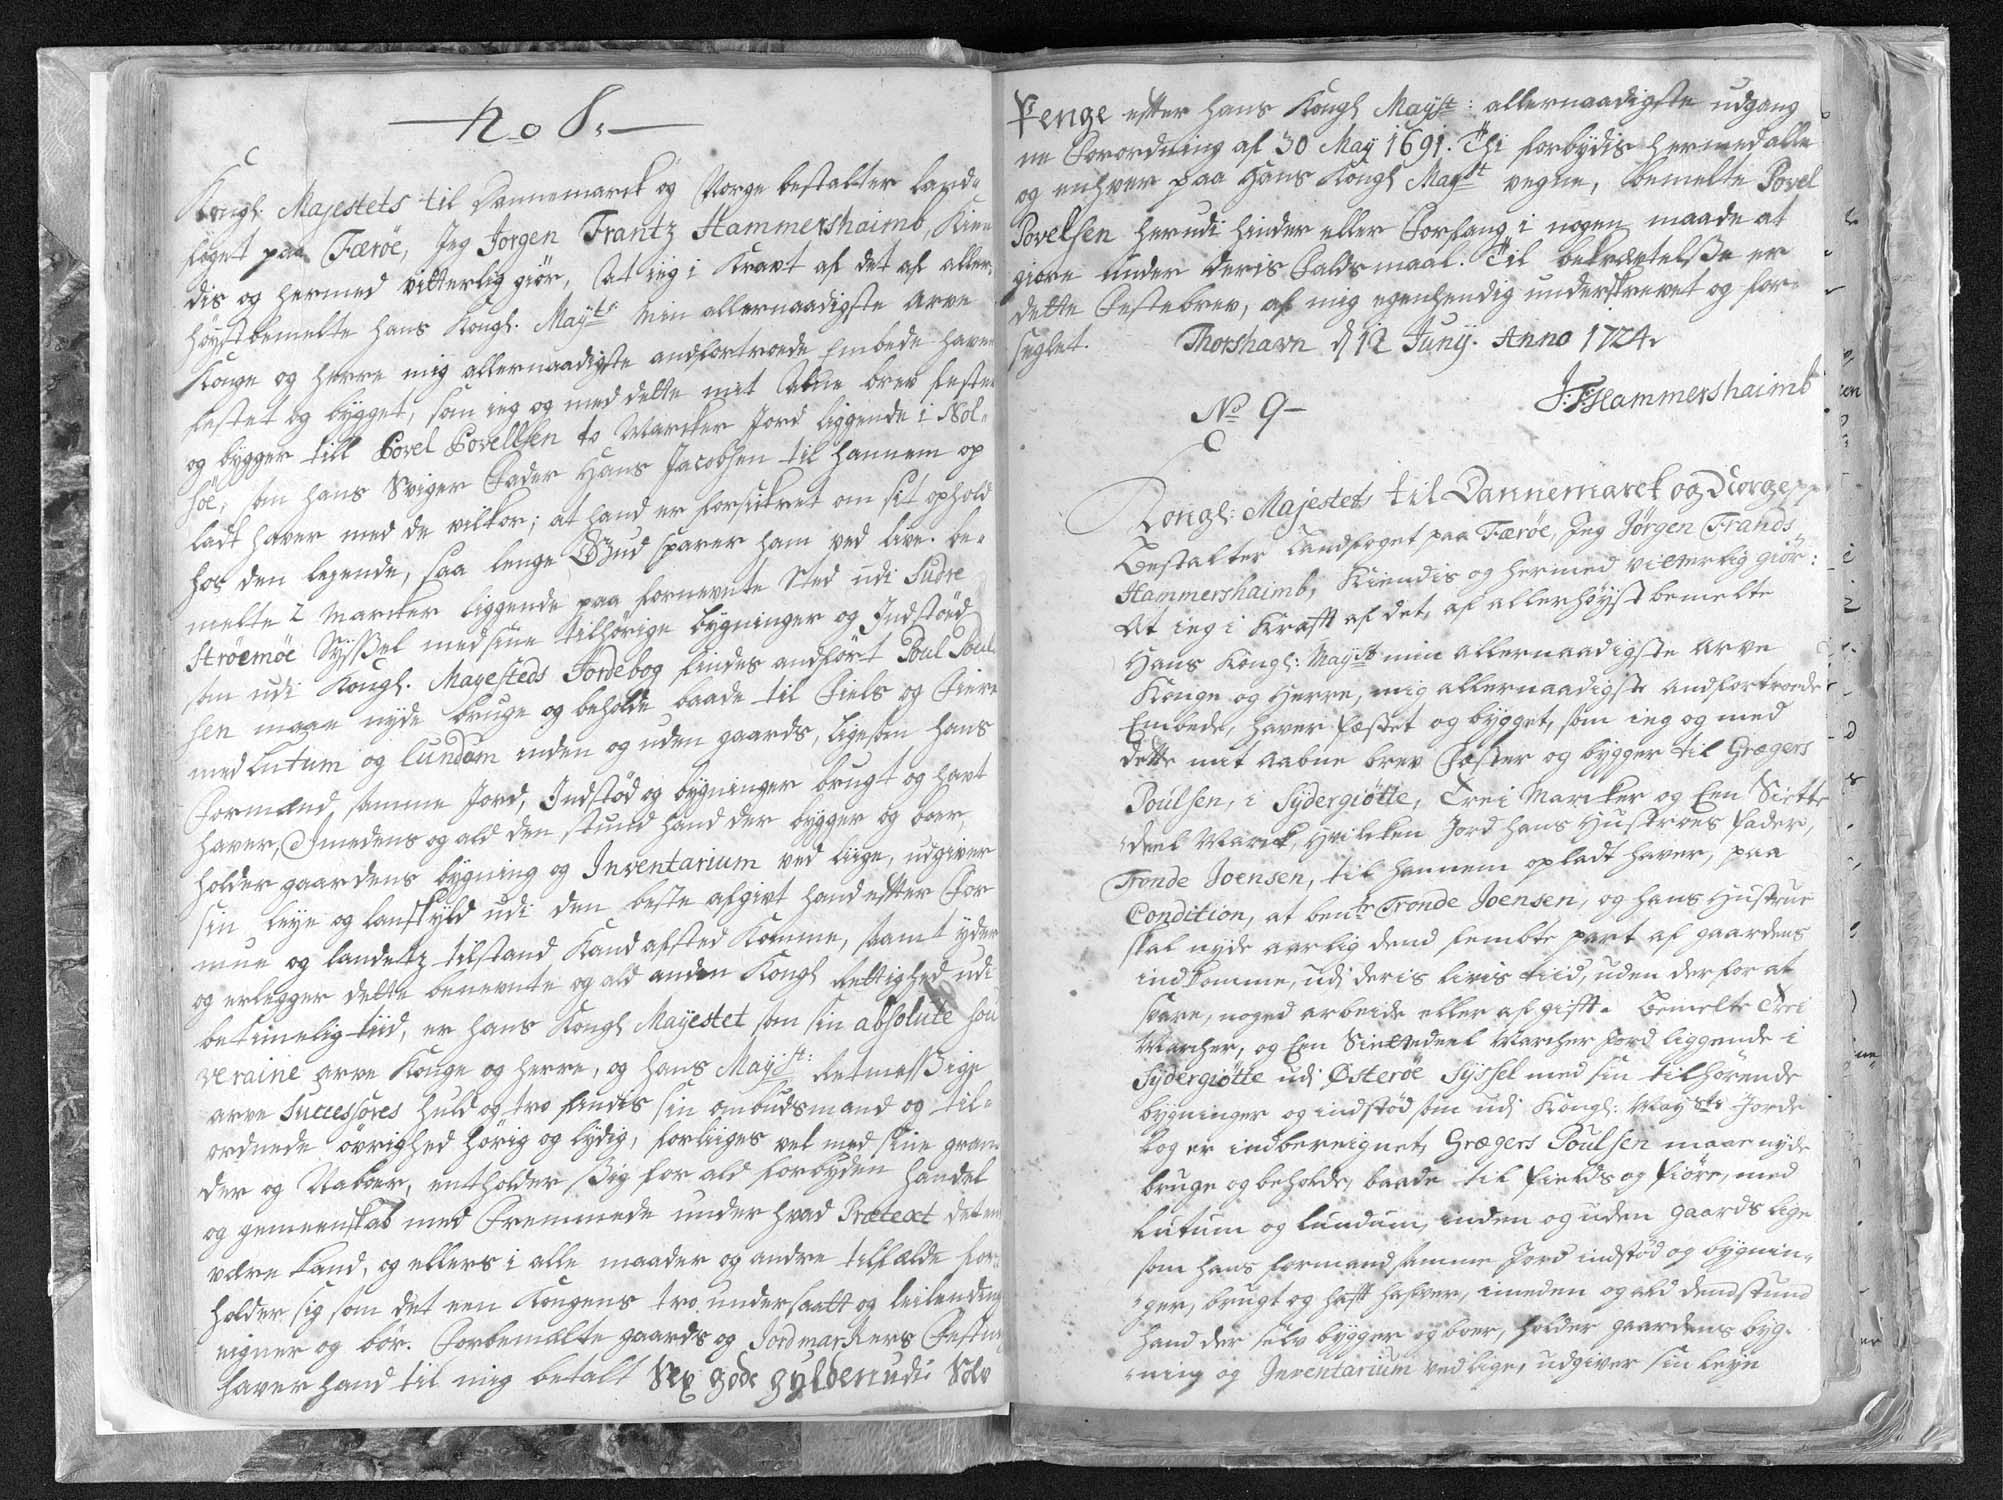 No 8.
Kongl. Majestets til Dannemarck og Norge bestalter land-
foget paa Færöe, Jeg Jorgen Frantz Hammershaimb, Kien
dis og hermed vitterlig giör, At ieg i Kravt af det af aller-
höystbemelte hans Kongl. Mayts min allernaadigste Arve
Konge og herre mig allernaadigste andfortroede Embede haver
festet og bygget, som ieg og med dette mit Abne brev fester
og bygger till Povel Povellsen to Marcker Jord liggende i Nol-
söe, som hans Sviger Fader Hans Jacobsen til hannem op
ladt haver med de vilkor; at hand er forsickret om sit ophold
hos den leyende, saa lenge Gud sparer ham ved live. be-
melte 2 Marcker liggende paa fornevnte Sted udi Sudre
Ströemöe Sysßel med sine tilhörige bygninger og Indstöed
som udi Kongl. Mayesteds Jordebog findes andfört Poul Poul-
sen maae nyde bruge og beholde baade til Fiels og Fiere
med Lutum og lundum inden og uden gaards, ligesom hans
Formænd samme Jord, Indstöd og bygninger brugt og havt
haver, Imedens og ald den stund hand der bygger og boer,
holder gaardens bygning og Inventarium ved liige, udgiver
sin leye og lanskyld udi den beste afgivt hand efter For
mue og landets tilstand Kand afsted Komme, samt yder
og erlegger dette benevnte og ald anden Kongl Rettighed udi
betimelig tiid, er hans Kongl Mayestet som sin absolute Sou
veraine arve Konge og herre, og hans Mayst: Retmessige
arve Successores huld og tro samt sin ombudsmand og til-
ordnede övrighed hörig og lydig, forliiges vel med sine gran-
der og Naboer, entholder sig for ald forbyden handel
og gemeenskab med Fremmede under hvad Prætext det end
være kand, og ellers i alle maader og andre tilfælde for-
holder sig som det een Kongens tro undersaatt og leilending
eigner og bör. Forbemelte gaards og Jord markers Festning
haver hand til mig betalt Sex gode gylden udi Sölv
Penge efter hans Kongl Mayst: allernaadigste udgang
ne Forordning af 30 May 1691. Thi forbydis hermed alle
og enhver paa Hans Kongl Mayst vegne, bemelte Povel
Povelsen herudi hinder eller Forfang i nogen maade at
giöre under deris Faldsmaal. Til bekræftelsße er
dette Festebrev, af mig egenhendig underskrevet og for-
seglet. Thorshavn d 12 Junij. Anno 1724.
J: F: Hammershaimb
No 9
Kongl: Majestets til Dannemarck og Norge
Bestalter Landfoget paa Færöe, Jeg Jörgen Frands
Hammershaimb, Kiendis og hermed vitterlig giör:
At ieg i Krafft af det, af allerhöyst bemelte
Hans Kongl: Mayst min allernaadigste Arve
Konge og Herre, mig allernaadigste andfortroede
Embede, haver fæstet og bygget, som ieg og med
dette mit aabne brev Fæster og bygger til Grægers
Poulsen, i Sydergiötte, Trei Marcker og Een Siette
deel Marck, hvilcken Jord hans Hustroes fader,
Tronde Joensen, til hannem opladt haver, paa
Condition, at bemte Tronde Joensen, og hans Hustrue
skal nyde aarlig dend fembte part af gaardens
indkomme, udi deris livs tiid, uden derfor at
svare, noged arbeide eller afgifft. bemelte Trei
Marcher, og Een Siettedeel Marcher Jord liggende i
Sydergiötte udi Østeröe Sÿssel med sin tilhörende
bygninger og indstöd som udi Kongl: Maysts Jorde
bog er indbereignet, Grægers Poulsen maae nyde
bruge og beholde, baade til fields og fiöre, med
Lutum og Lundum, inden og uden gaards lige
som hans formand samme Jord indstöd og bygnin-
ger, brugt og hafft hafver, imeden og ald dend stund
hand der selv bygger og boer, holder gaardens byg-
ning og Inventarium ved lige, udgiver sin leye